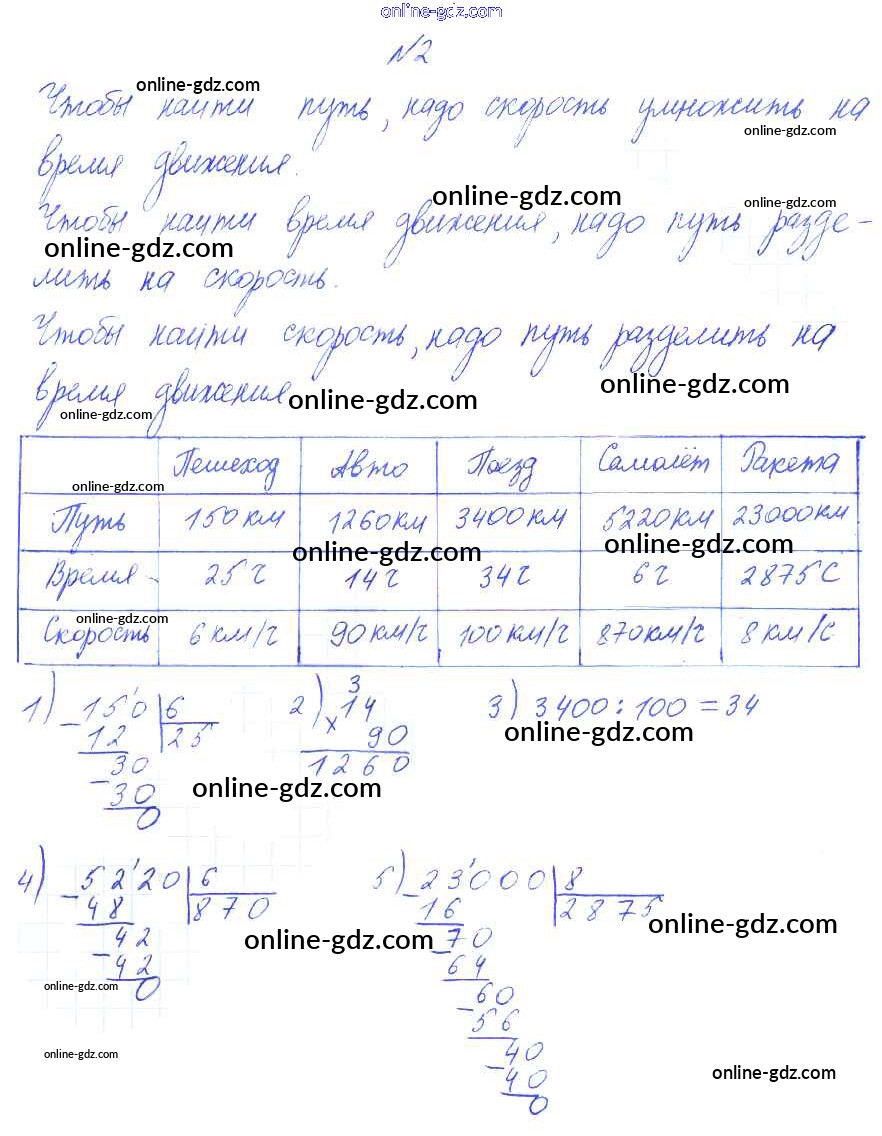 online-gdz.com
№2
online-gdz.com
Чтобы найти путь, надо скорость умножить на
online-gdz.com
время движения.
online-gdz.com
online-gdz.com
Чтобы найти время движения, надо путь разде-
online-gdz.com
лить на скорость.
Чтобы найти скорость, надо путь разделить на
время движения
online-gdz.com
online-gdz.com
online-gdz.com
Пешеход Авто Поезд Самолёт Ракета
online-gdz.com
Путь 150 км 1260 км 3400 км 5220 км 23000 км
online-gdz.com
online-gdz.com
Время 25 ч 14 ч 34 ч 6 ч 2875 с
online-gdz.com
Скорость 6 км/ч 90 км/ч 100 км/ч 870 км/ч 8 км/с
3
1) 150 6 2) 14 3) 3400 : 100 = 34
- 12 25 x 90
online-gdz.com
30 1260
- 30
online-gdz.com
0
4) 5220 6 5) 23000 8
- 48 870 - 16 2875
online-gdz.com
42 70
online-gdz.com
- 42 - 64
0 60
online-gdz.com
- 56
online-gdz.com
40
- 40
online-gdz.com
0